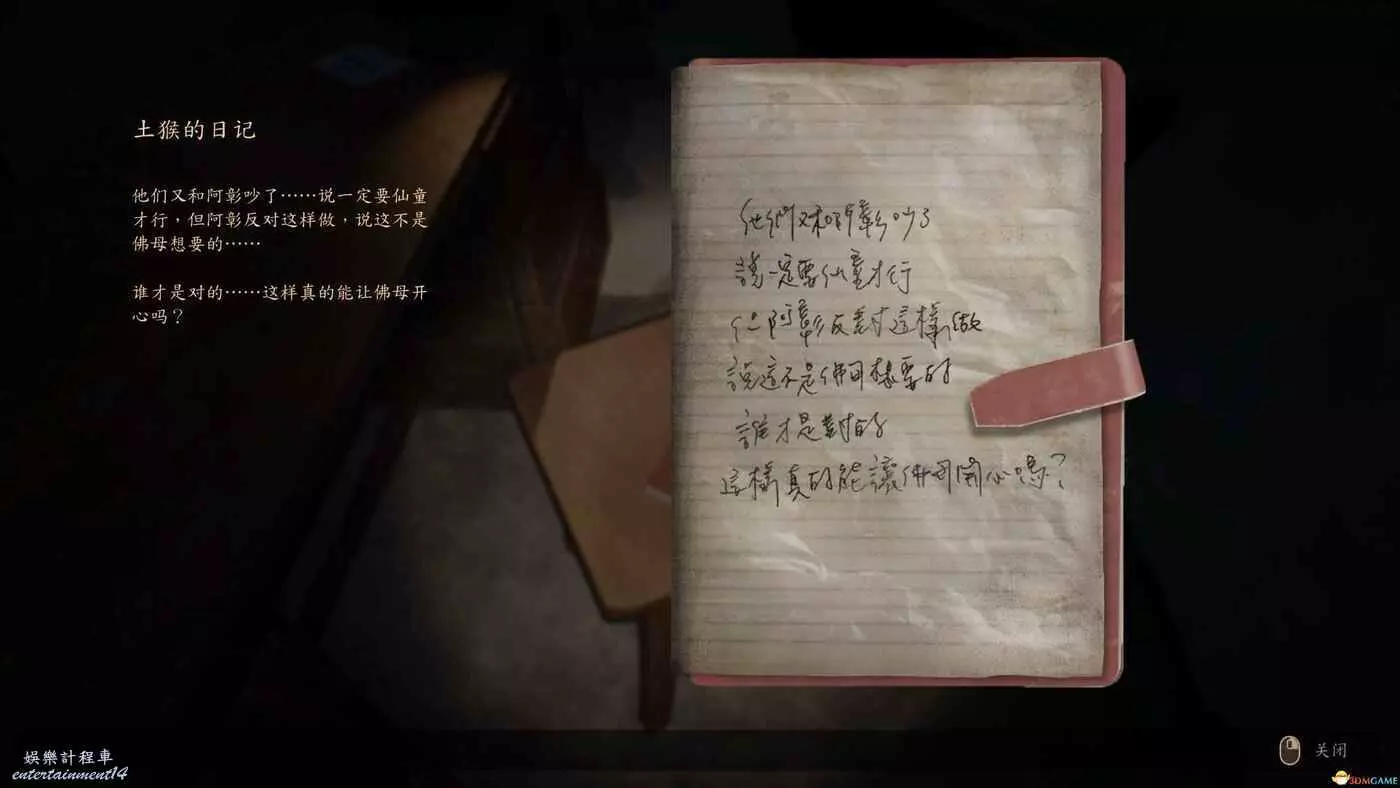 土猴的日记
他们又和阿彰吵了……说一定要仙童
才行，但阿彰反对这样做，说这不是
佛母想要的……
谁才是对的……这样真的能让佛母开
心吗？
他們又和阿彰吵了
說一定要仙童才行
但阿彰反對這樣做
說這不是佛母想要的
誰才是對的
這樣真的能讓佛母開心嗎？
关闭
娛樂計程車
entertainment14
3DMGAME